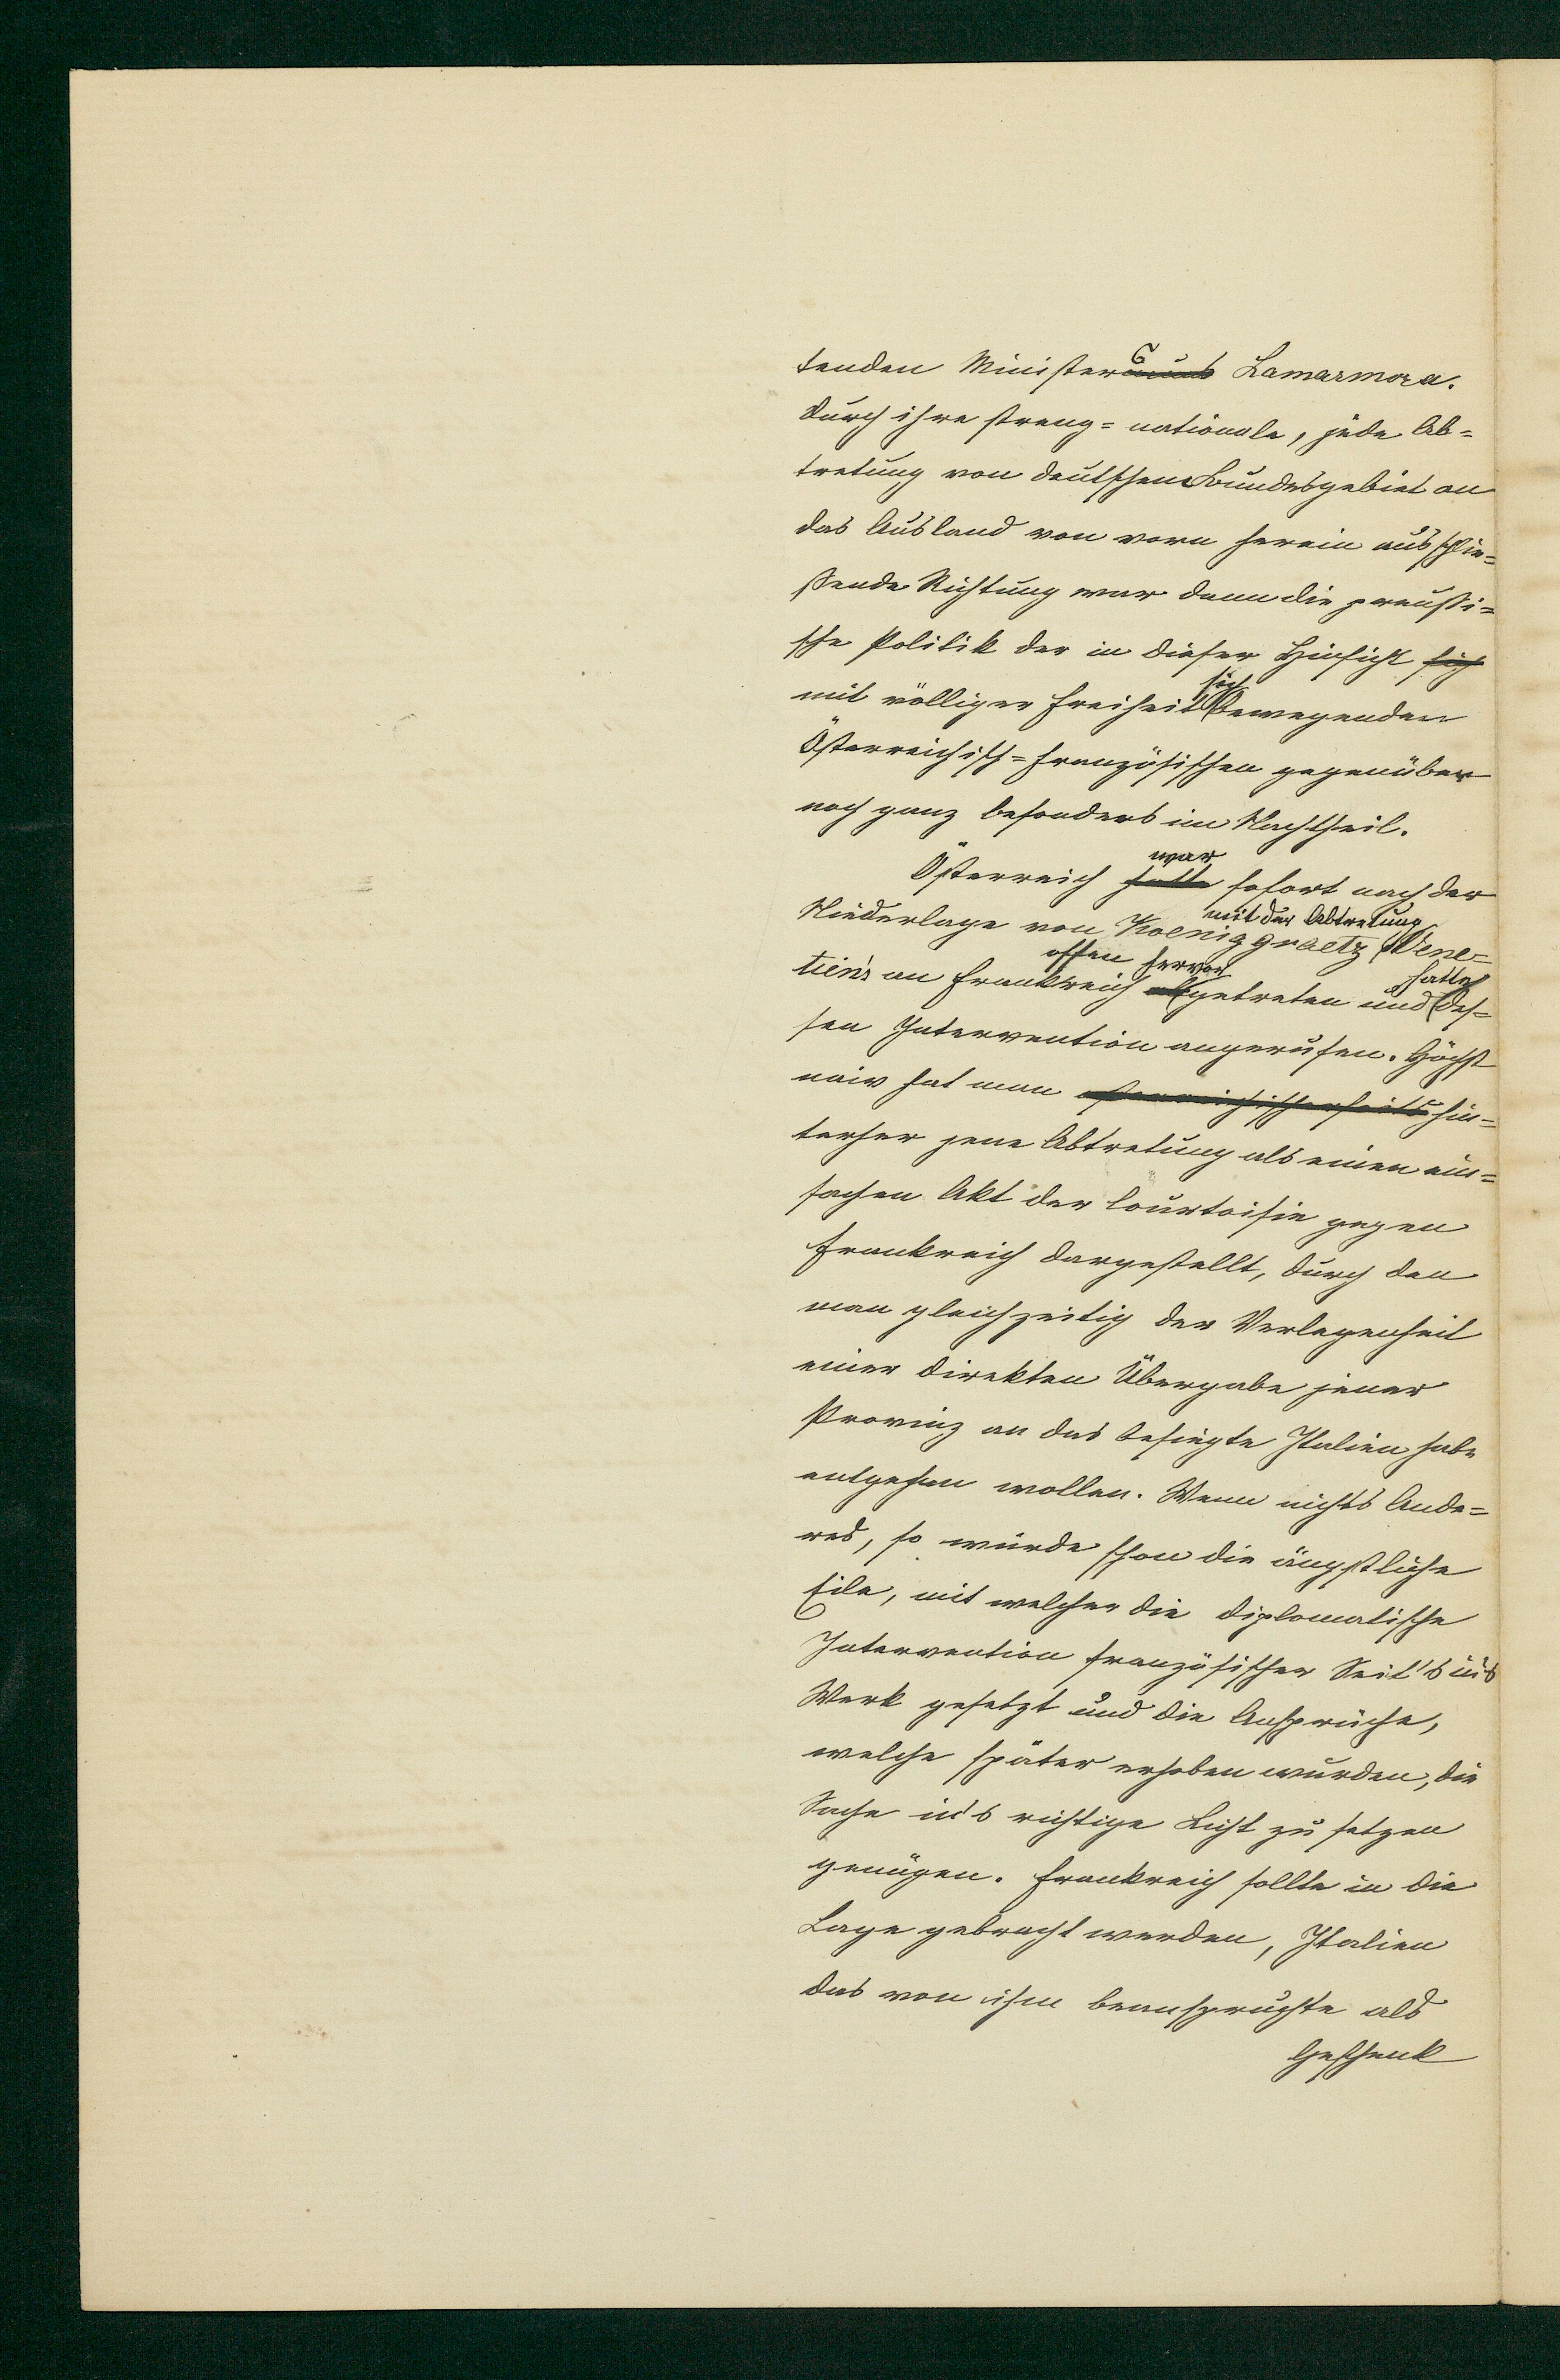 tenden Ministers Lamarmora.
Durch ihre streng=nationale, jede Ab=
tretung von deutschem Bundesgebiet an
das Ausland von vorn herein ausschlie=
ßende Richtung war dann die preußi=
sche Politik der in dieser Hinsicht sich
sich
mit völliger Freiheit bewegenden
Österreichisch=französischen gegenüber
noch ganz besonders im Nachtheil.
war
Österreich hatte sofort nach der
mit der Abtretung
Niederlage von Koeniggraetz Vene=
offen hervor hatte
tien's an Frankreich getreten und des=
sen Intervention angerufen. Höchst
naiv hat man österreichischerseits hin=
terher jene Abtretung als einen ein=
fachen Akt der Courtoisie gegen
Frankreich dargestellt, durch den
man gleichzeitig der Verlegenheit
einer direkten Übergabe jener
Provinz an das besiegte Italien habe
entgehen wollen. Wenn nichts Ande=
res, so würde schon die ängstliche
Eile, mit welcher die diplomatische
Intervention französischer Seit's in's
Werk gesetzt und die Ansprüche,
welche später erhoben wurden, die
Sache in's richtige Licht zu setzen
genügen. Frankreich sollte in die
Lage gebracht werden, Italien
das von ihm beanspruchte als
Geschenk